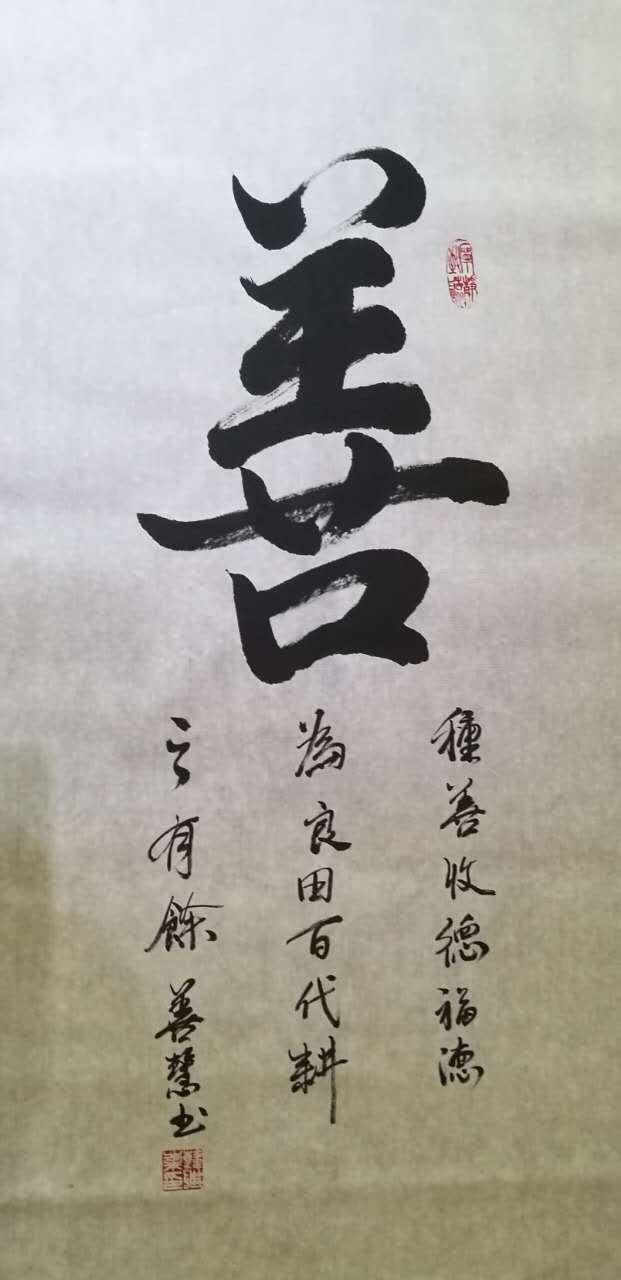 善
種善收德福德
為良田百代耕
之有餘 善慧书